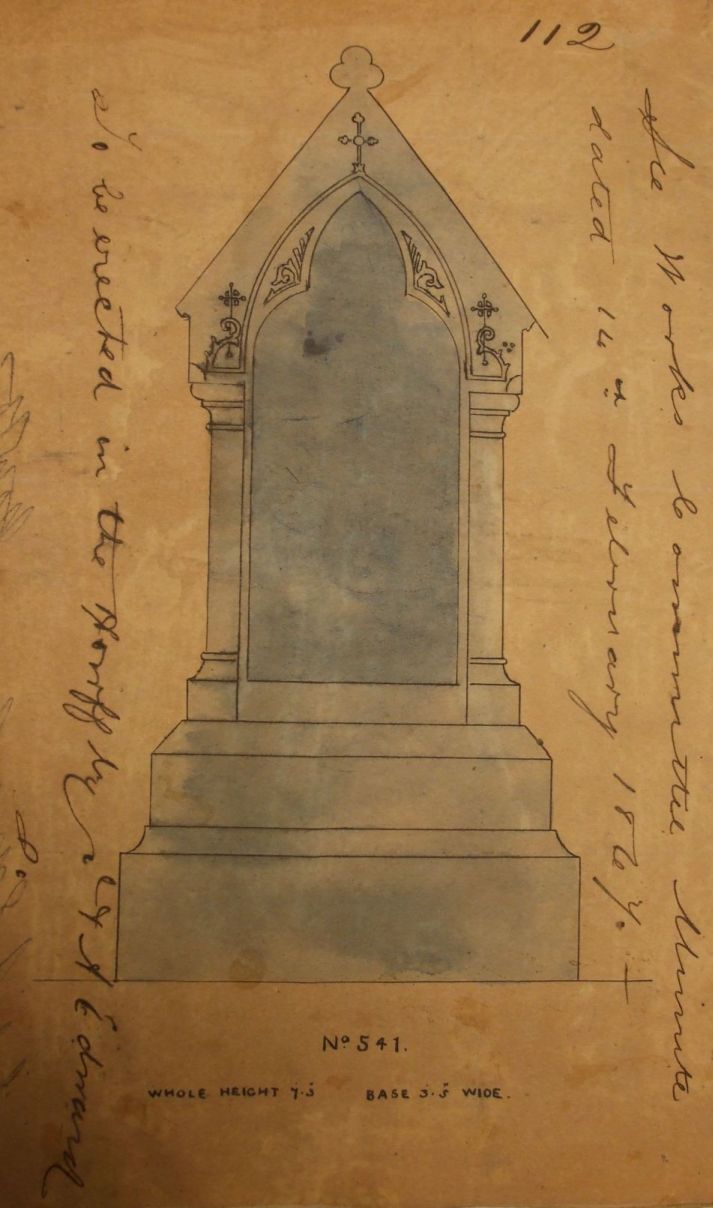 112
See Works Committee Minute
dated 14th February 1867.
To be erected in the Howff by
& A Edward
No 541.
WHOLE HEIGHT 7.5 BASE 3.5 WIDE.